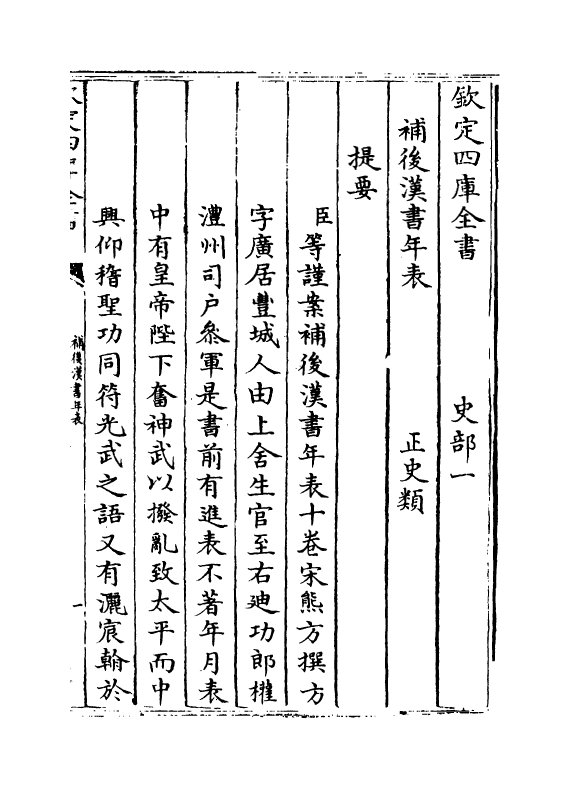 欽定四庫全書　史部一
補後漢書年表　正史類
提要
臣等謹案補後漢書年表十卷宋熊方撰方
字廣居豐城人由上舍生官至右廸功郎權
澧州司户叅軍是書前有進表不著年月表
中有皇帝陛下奮神武以撥亂致太平而中
興仰稽聖功同符光武之語又有灑宸翰於
欽定四庫全書
補後漢書年表
一